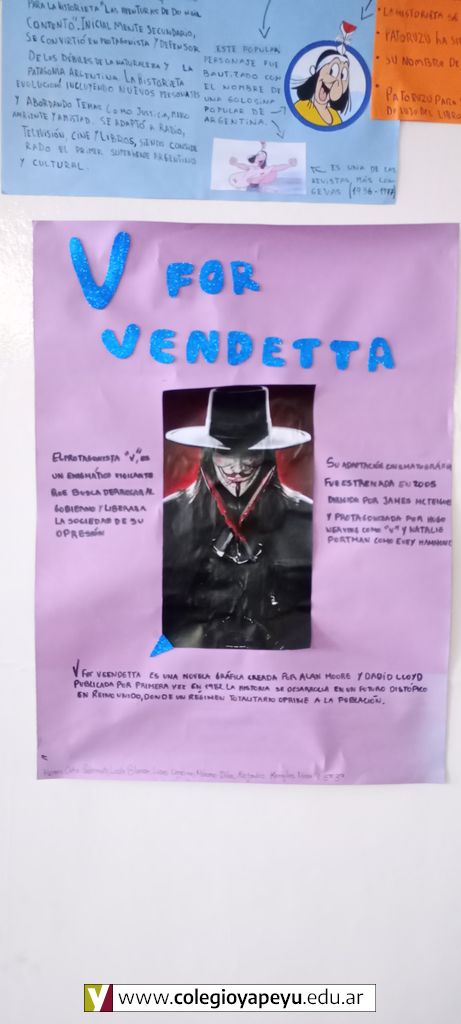 PARA LA HISTORIETA "LAS AVENTURAS DE DON GIL
CONTENTO". INICIALMENTE SECUNDARIO,
SE CONVIRTIÓ EN PROTAGONISTA Y DEFENSOR
DE LOS DÉBILES DE LA NATURALEZA Y LA
PATAGONIA ARGENTINA. LA HISTORIETA
EVOLUCIONÓ INCLUYENDO NUEVOS PERSONAJES
Y ABORDANDO TEMAS COMO JUSTICIA, MEDIO
AMBIENTE Y AMISTAD. SE ADAPTÓ A RADIO,
TELEVISIÓN, CINE Y LIBROS, SIENDO CONSIDE
RADO EL PRIMER SUPERHÉROE ARGENTINO
Y CULTURAL.
ESTE POPULAR
PERSONAJE FUE
BAUTIZADO CON
EL NOMBRE DE
UNA GOLOSINA
POPULAR DE
ARGENTINA.
ES UNA DE LAS
REVISTAS, MÁS LON
GEVAS (1936-1977)
• LA HISTORIETA SE
• PATORUZÚ HA SI
• SU NOMBRE DE
• PATORUZÚ PARA
V FOR
VENDETTA
EL PROTAGONISTA "V", ES
UN ENIGMÁTICO VIGILANTE
QUE BUSCA DERROCAR AL
GOBIERNO Y LIBERAR A
LA SOCIEDAD DE SU
OPRESIÓN
SU ADAPTACIÓN CINEMATOGRÁFICA
FUE ESTRENADA EN 2005
DIRIGIDO POR JAMES MCTEIGUE
Y PROTAGONIZADA POR HUGO
WEAVING COMO "V" Y NATALIE
PORTMAN COMO EVEY HAMMOND
V FOR VEENDETTA ES UNA NOVELA GRÁFICA CREADA POR ALAN MOORE Y DADID LLOYD
PUBLICADA POR PRIMERA VEZ EN 1982. LA HISTORIA SE DESARROLLA EN UN FUTURO DISTÓPICO
EN REINO UNIDO, DONDE UN RÉGIMEN TOTALITARIO OPRIME A LA POBLACIÓN.
V www.colegioyapeyu.edu.ar